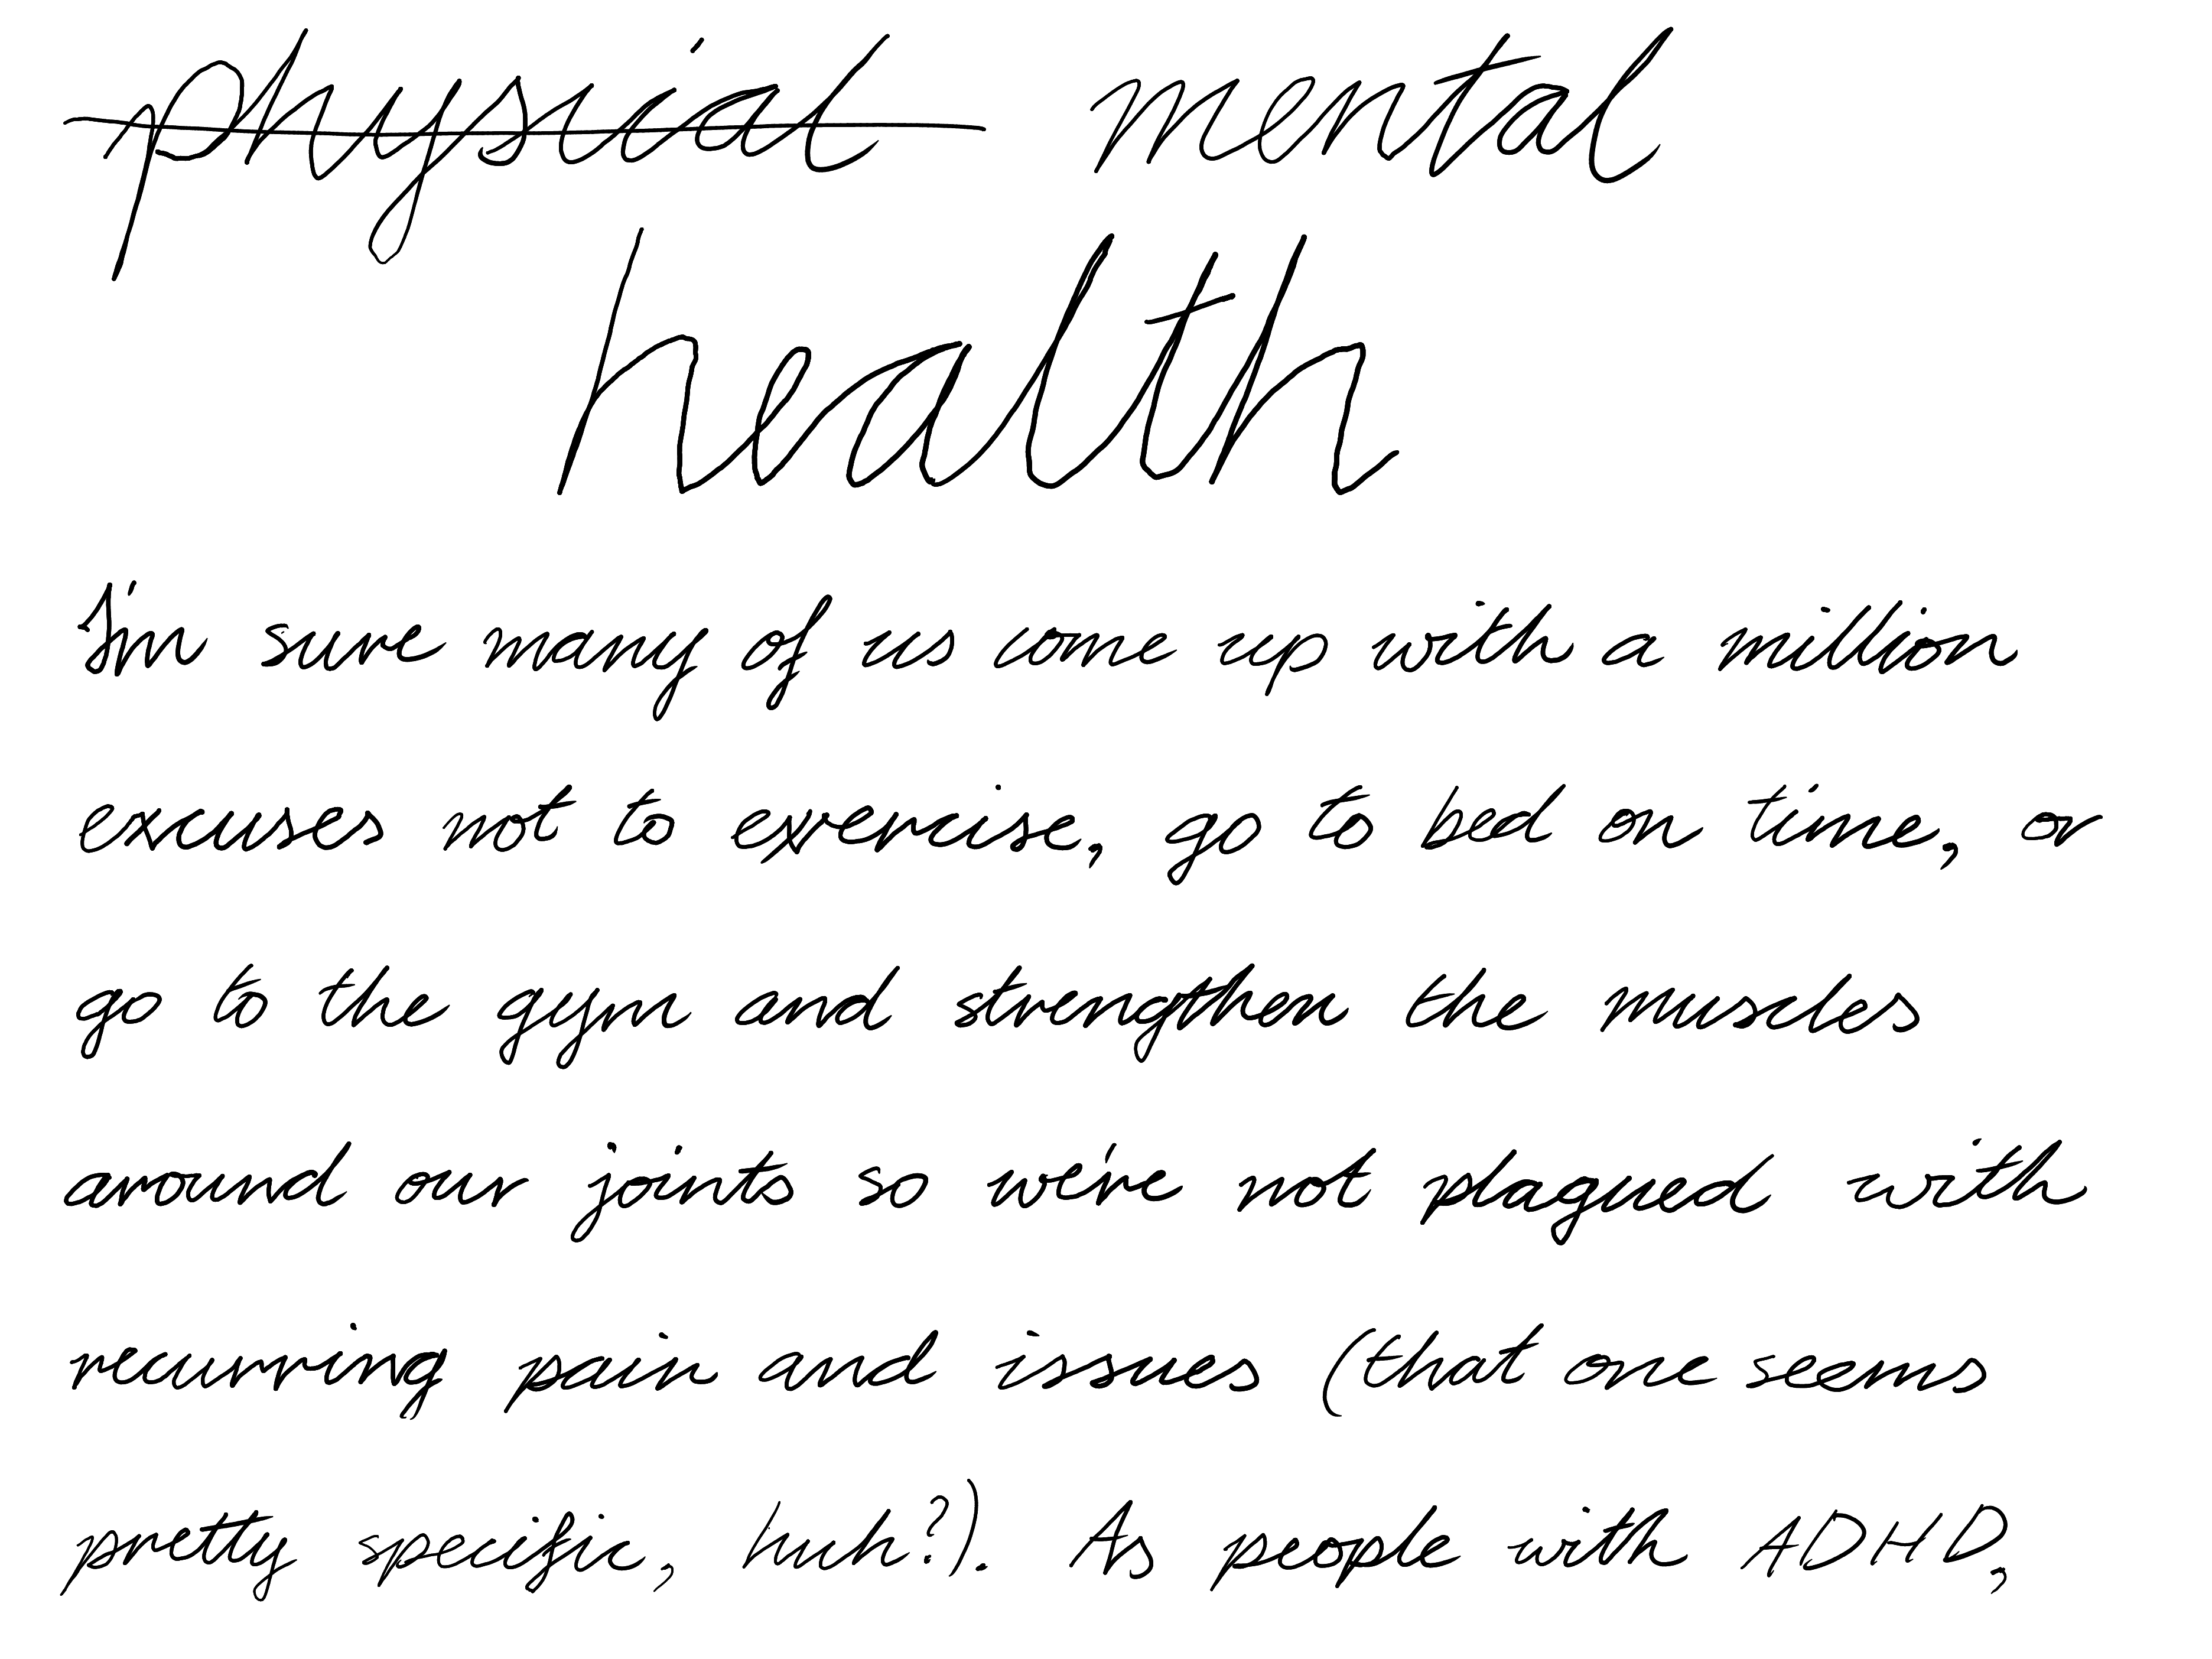 physical mental
health
I'm sure many of us come up with a million
excuses not to exercise, go to bed on time, or
go to the gym and strengthen the muscles
around our joints so we're not plagued with
recurring pain and issues (that one seems
pretty specific, huh?). As people with ADHD,